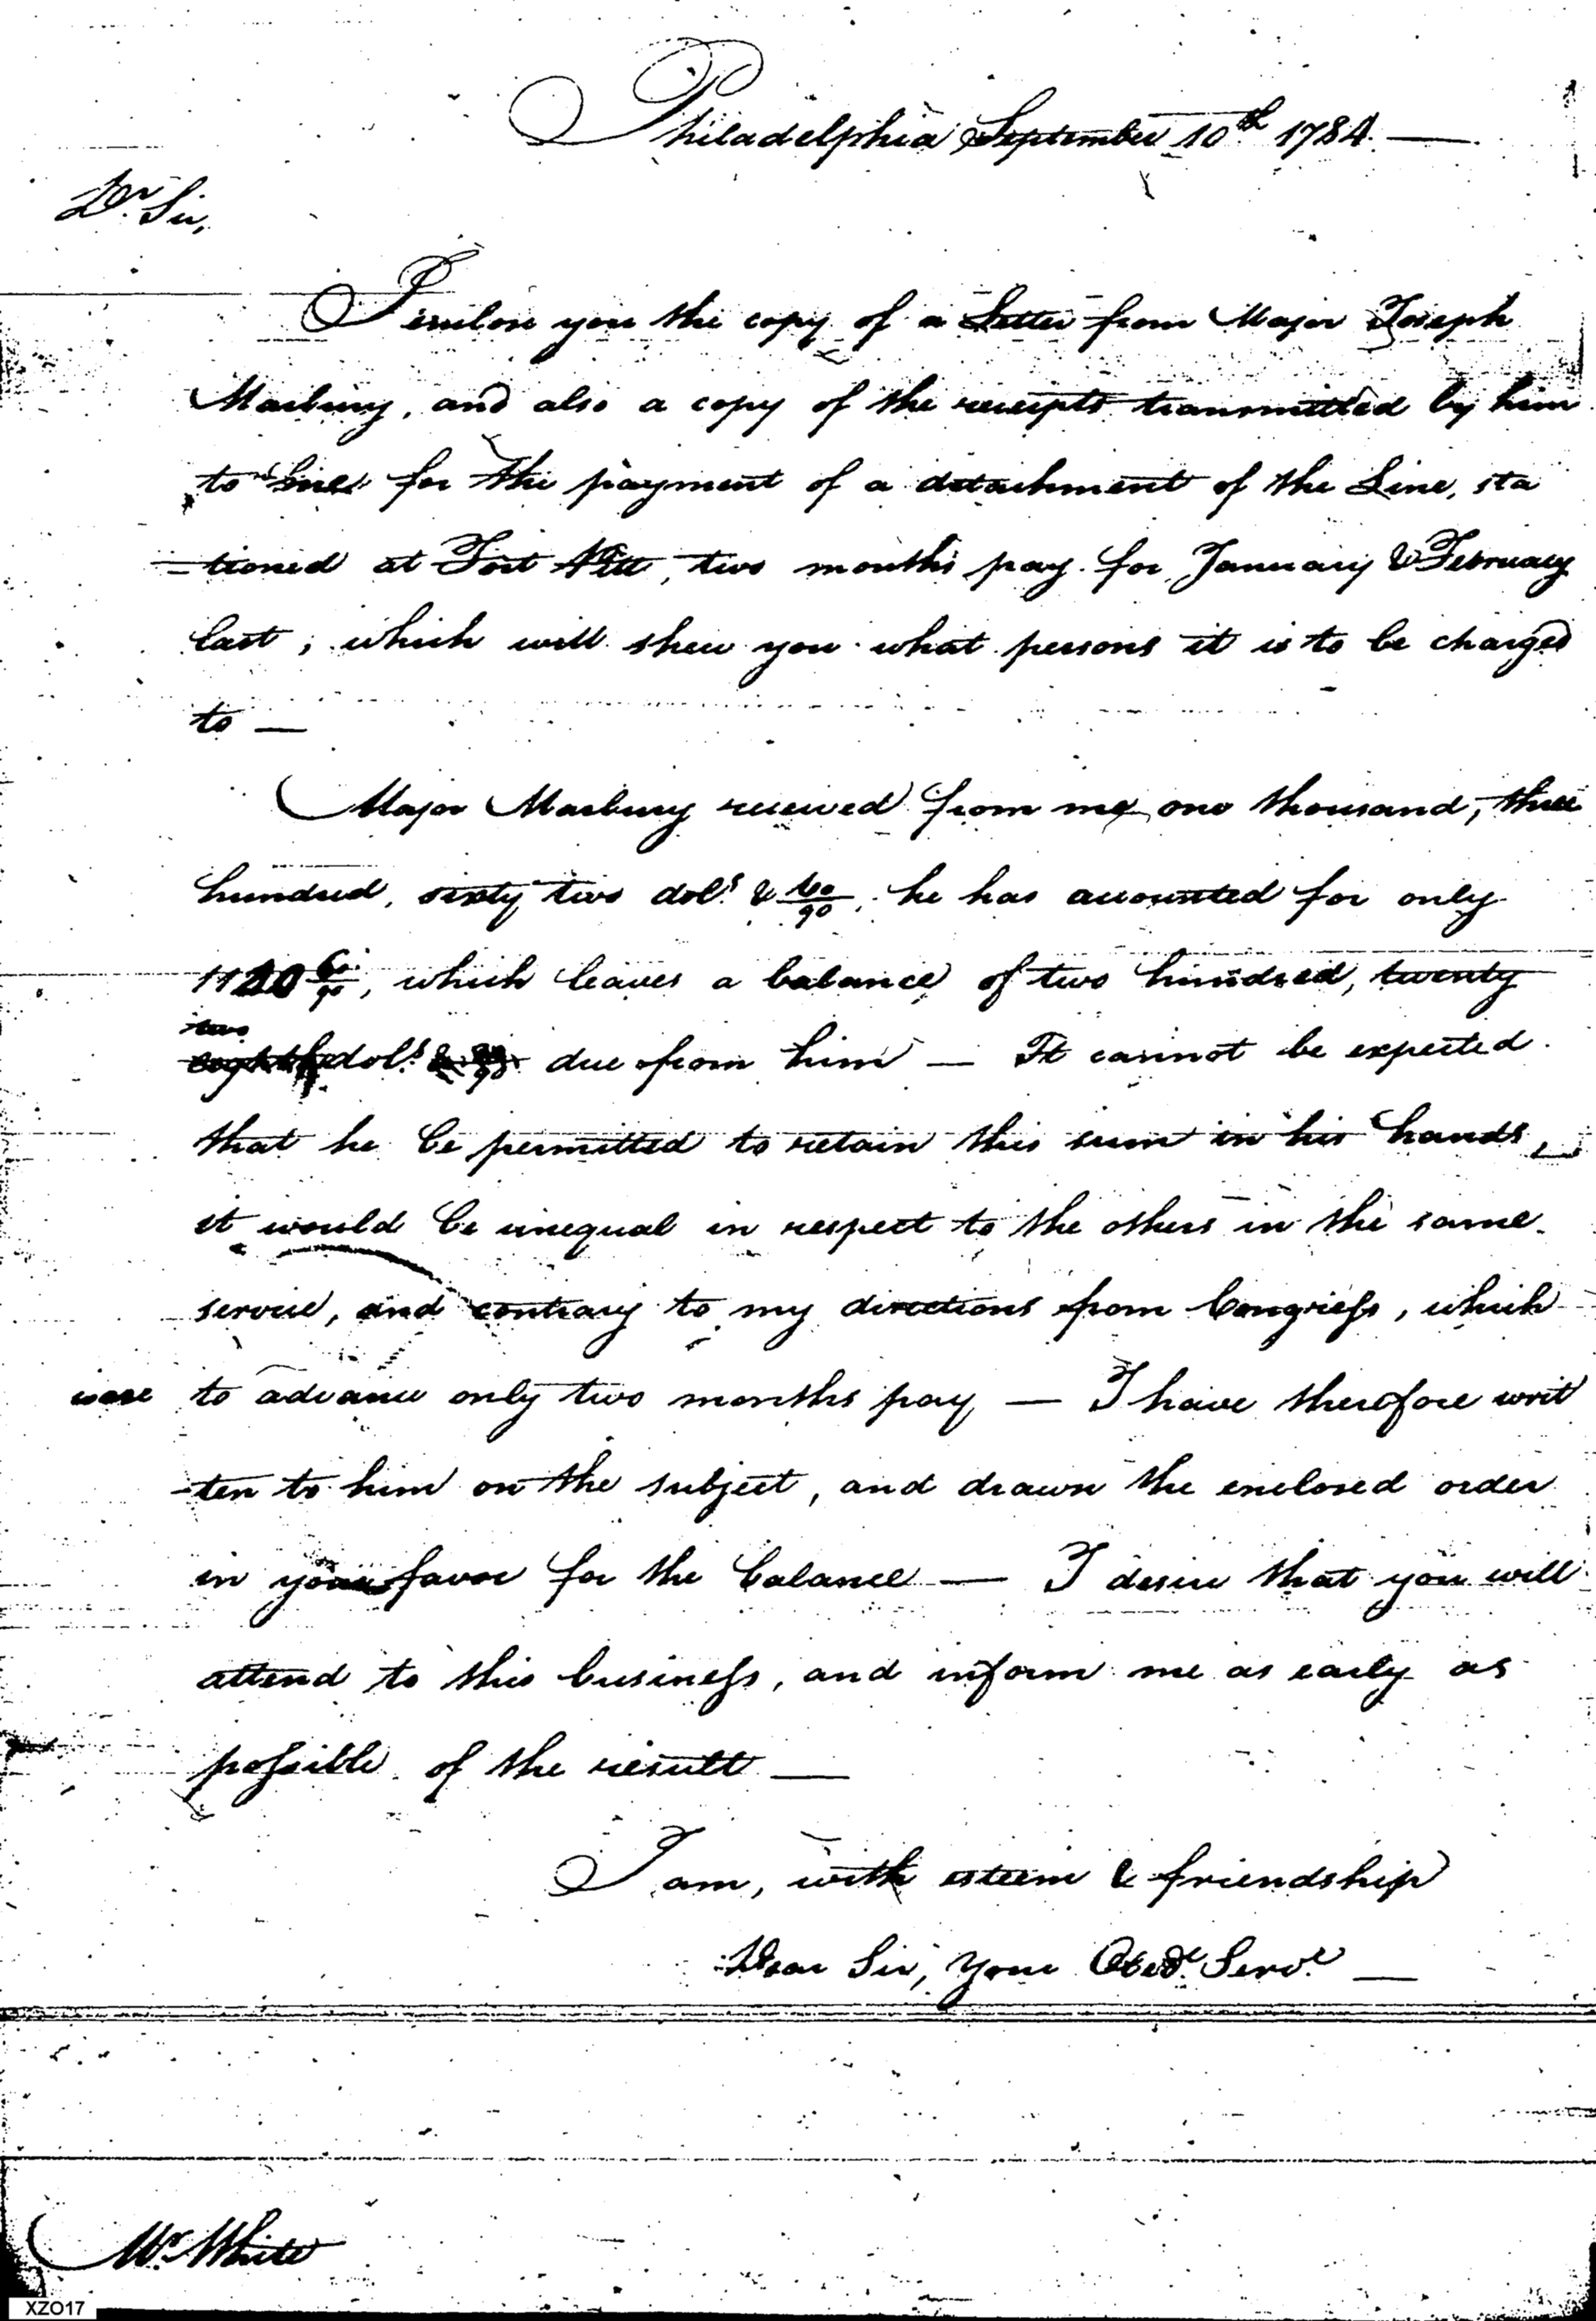 Philadelphia September 10th 1784. —
Dr. Sir,
I enclose you the copy of a Letter from Major Joseph
Marbury, and also a copy of the receipts transmitted by him
to me for the payment of a detachment of the Line, sta
-tioned at Fort Pitt, two months pay for January & February
last, which will shew you what persons it is to be charged
to —
Major Marbury received from me one thousand, three
hundred, sixty two dols. & 60/90, he has accounted for only
1140 60/90, which leaves a balance of two hundred, twenty
two
dols. due from him — It cannot be expected
that he be permitted to retain this sum in his hands,
it would be unequal in respect to the others in the same
service, and contrary to my directions from Congress, which
were to advance only two months pay — I have therefore writ
-ten to him on the subject, and drawn the enclosed order
in your favor for the balance — I desire that you will
attend to this business, and inform me as early as
possible of the result —
I am, with esteem & friendship
Dear Sir, your Obedt. Servt. —
Mr. White
XZO17